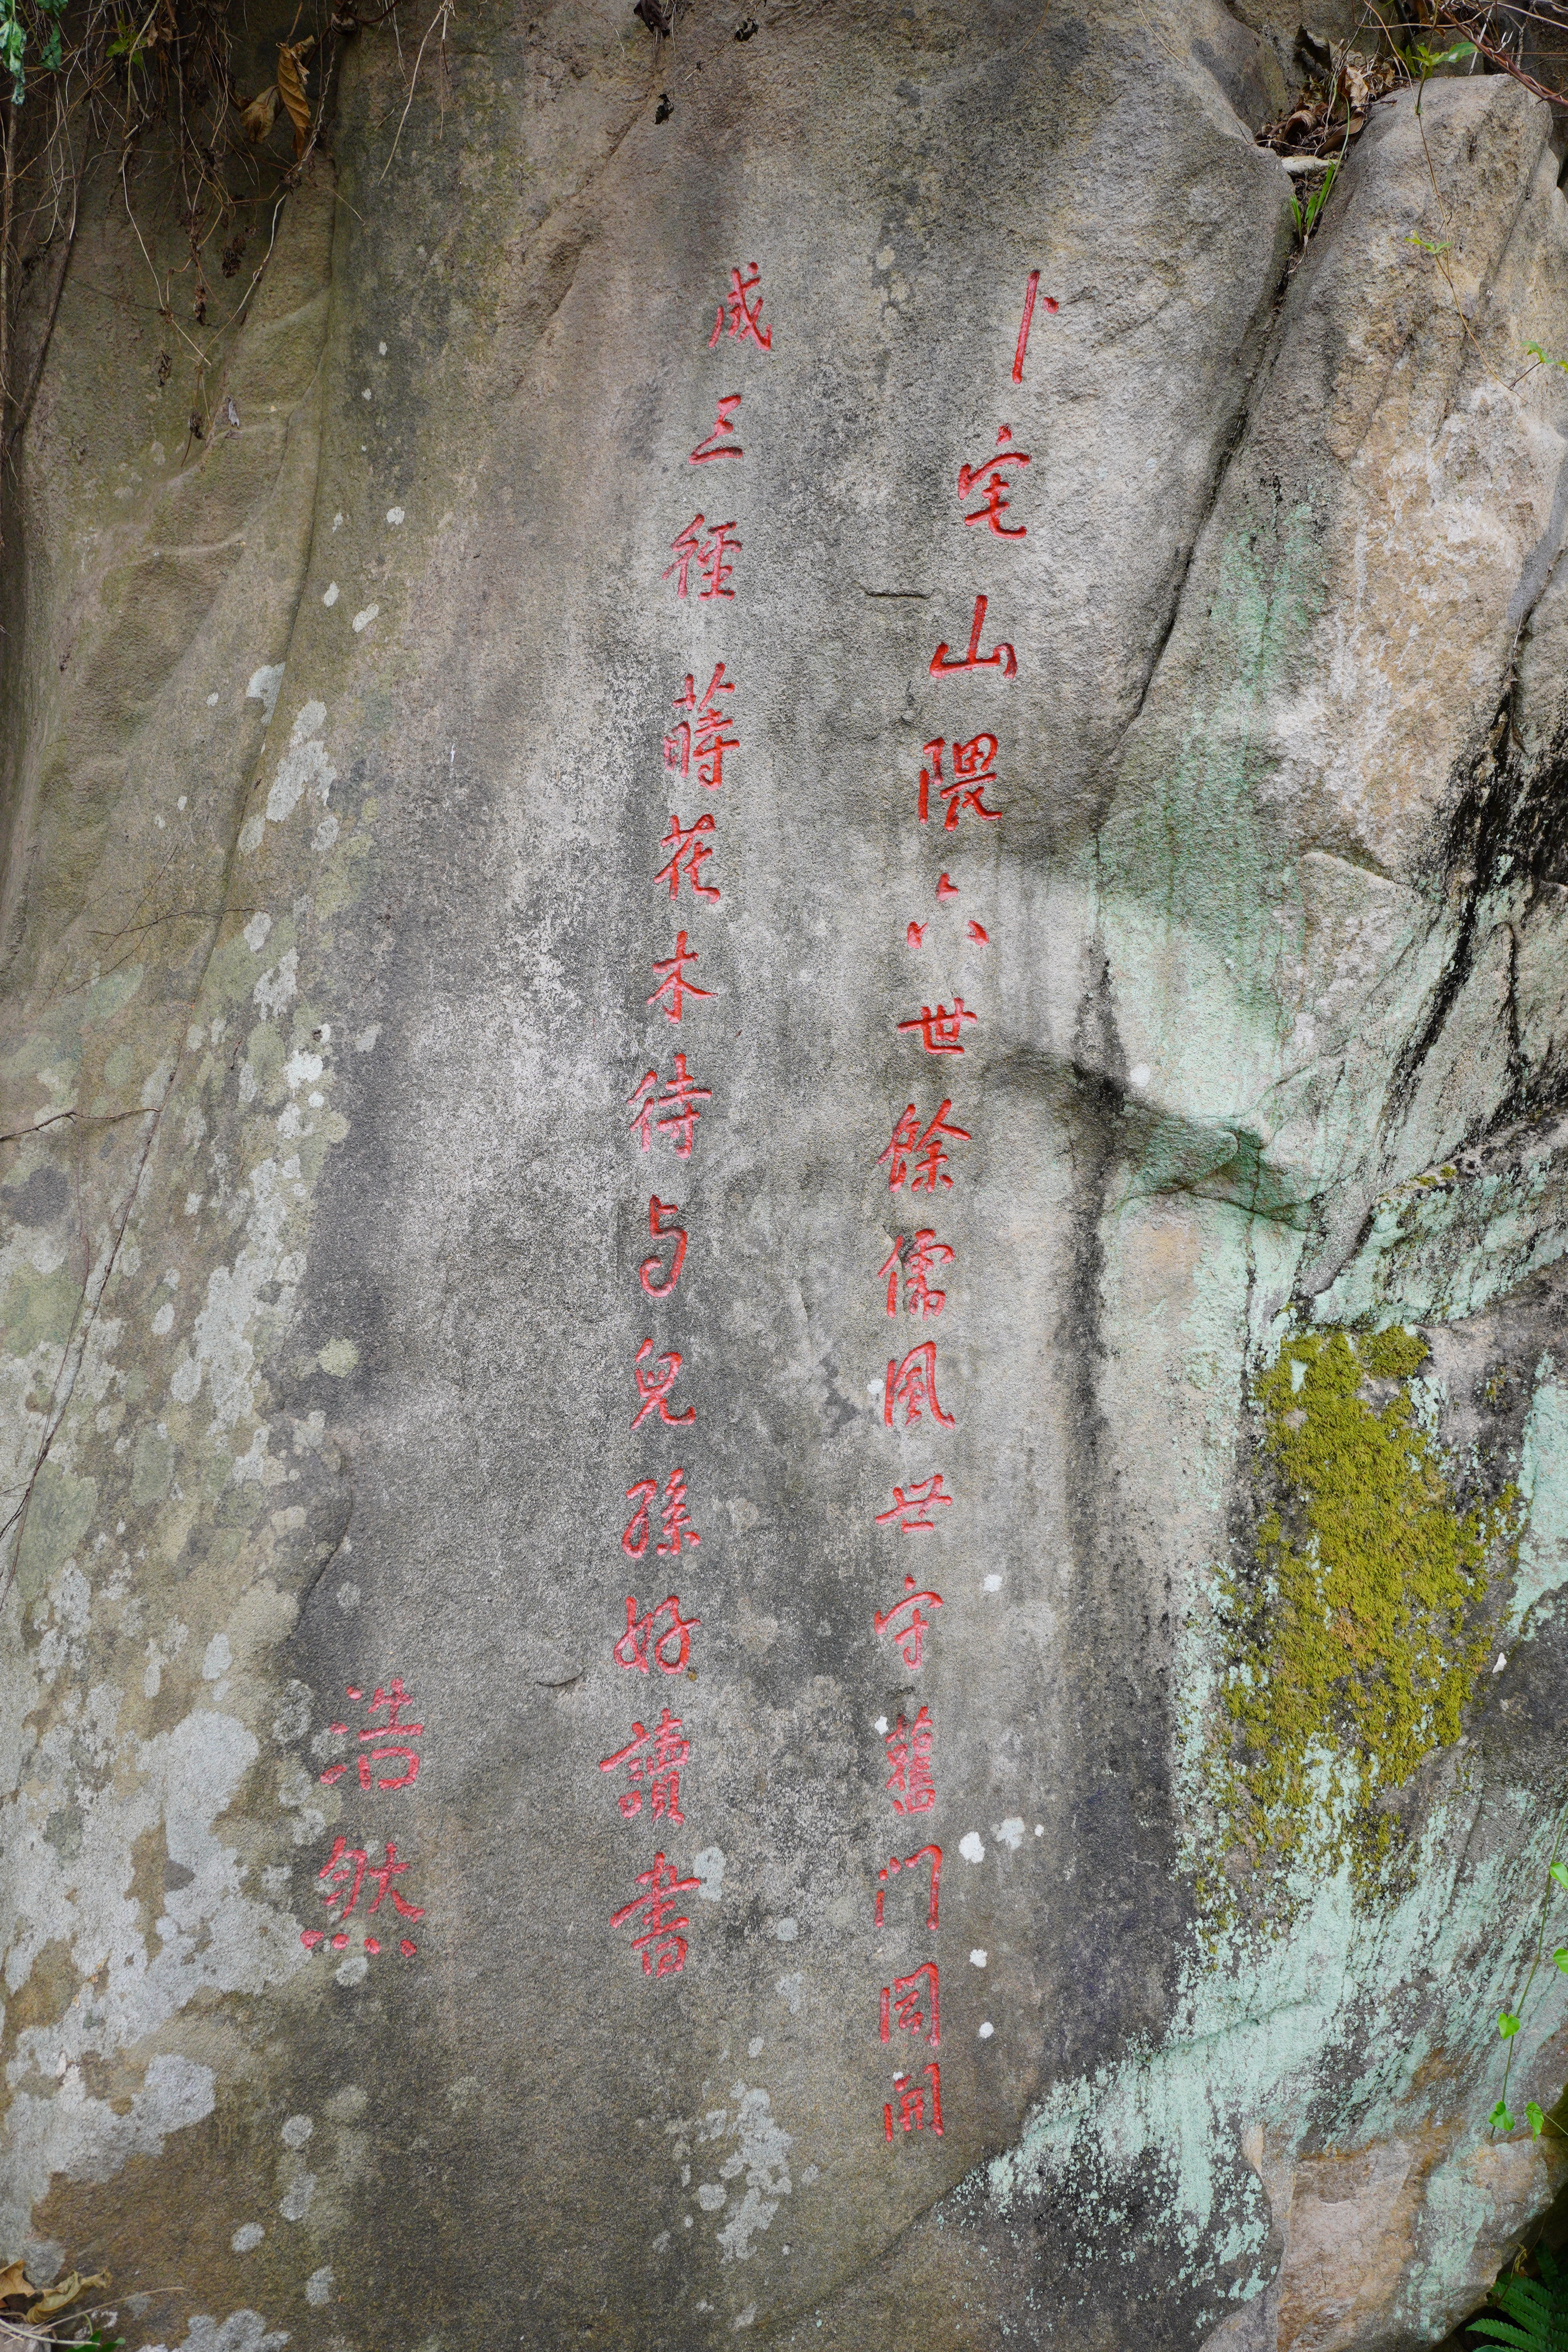 卜宅山隈六世餘儒風世守舊门闾開
成三徑蒔花木待与兒孫好讀書
浩然